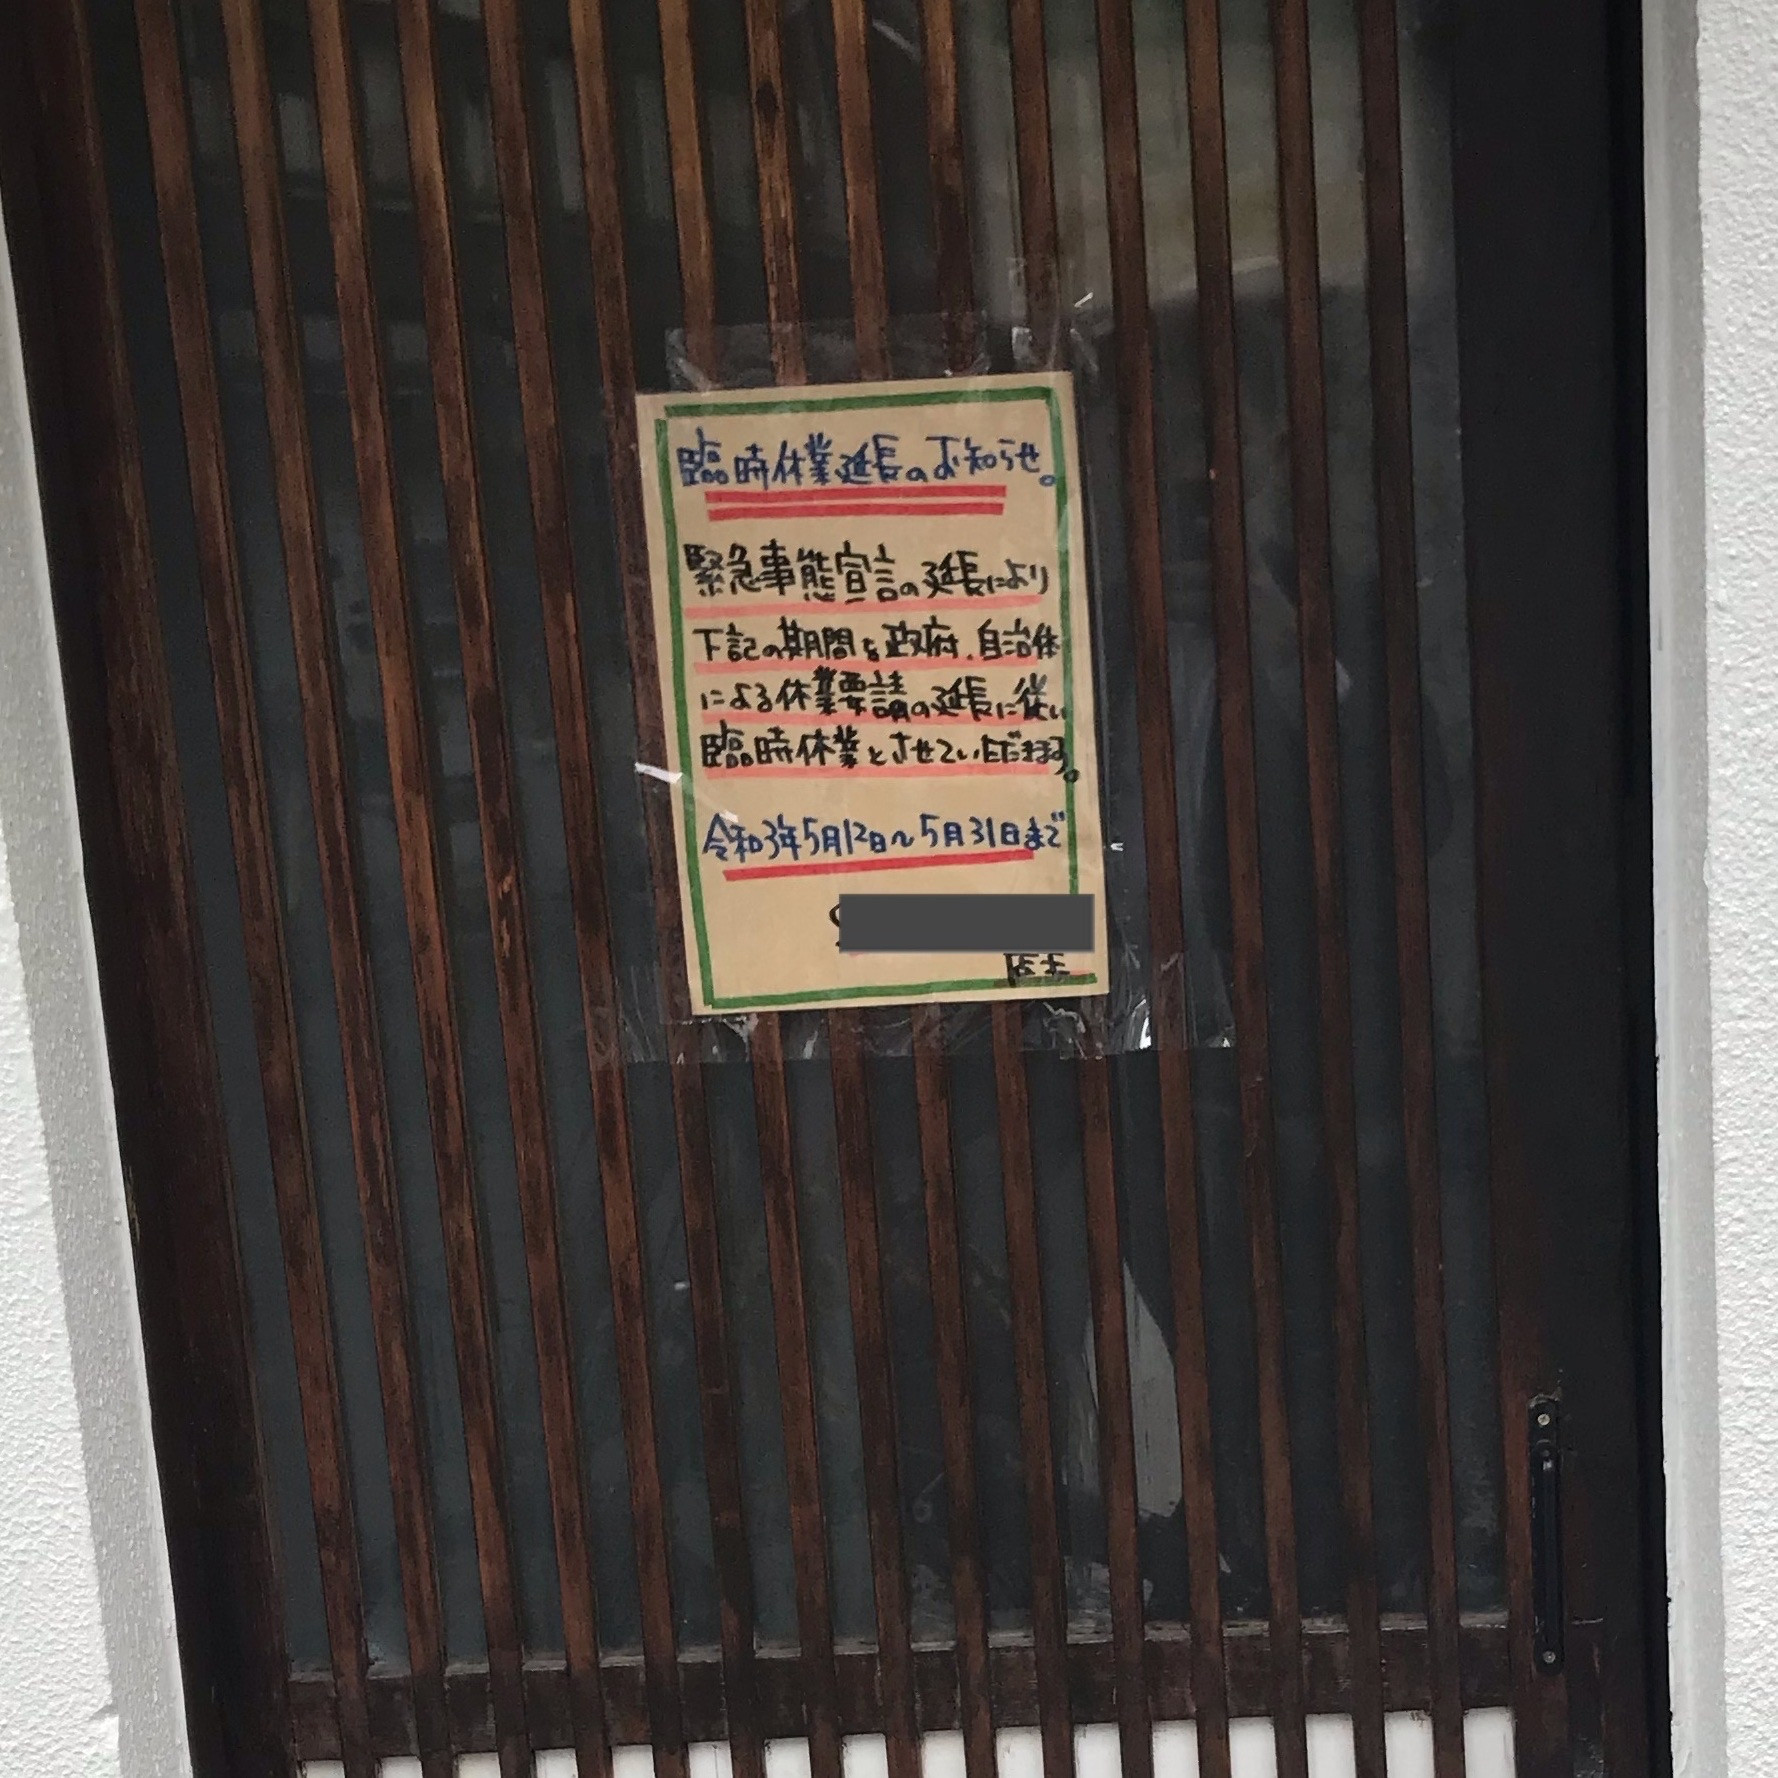 臨時休業延長のお知らせ。
緊急事態宣言の延長により
下記の期間を政府、自治体
による休業要請の延長に従い
臨時休業とさせていただきます。
令和3年5月12日〜5月31日まで
店主